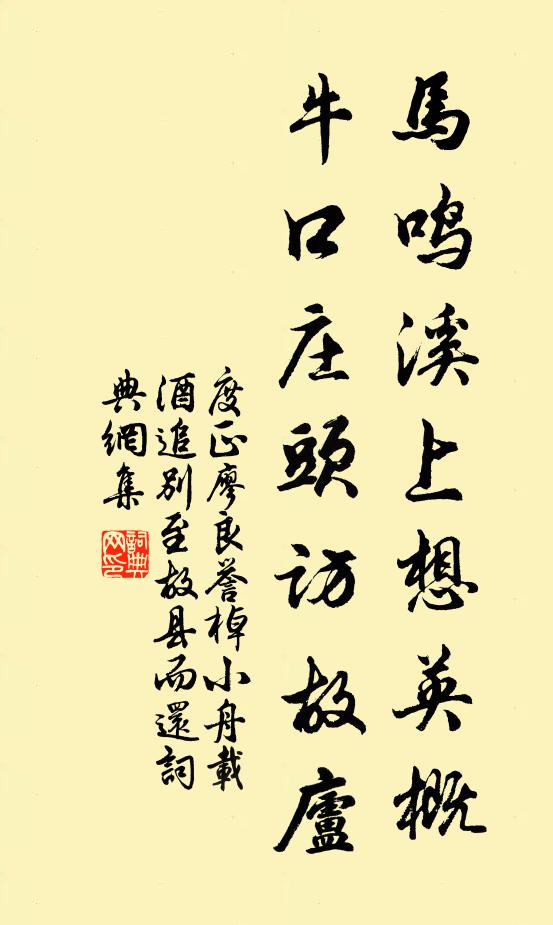 馬鸣溪上想英概
牛口庄頭访故廬
度正廖良誉棹小舟載
酒追别至故县而還詞
典網集
詞典网印